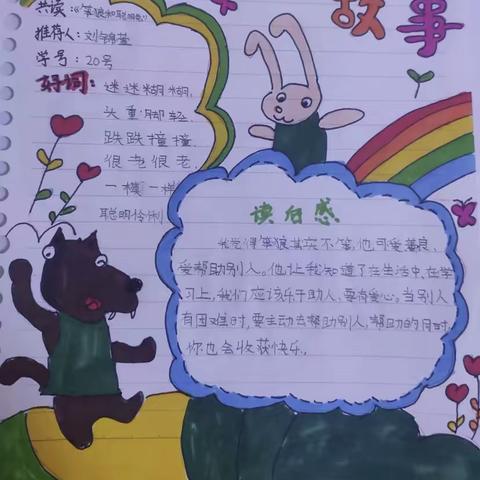 故事
共读：《笨狼和聪明兔》
推荐人：刘锦萱
学号：20号
好词：迷迷糊糊
头重脚轻
跌跌撞撞
很老很老
一模一样
聪明伶俐
读后感
我觉得笨狼其实不笨，他可爱善良，
爱帮助别人。他让我知道了在生活中、在学
习上，我们应该乐于助人，要有爱心。当别人
有困难时，要主动去帮助别人，帮助的同时，
你也会收获快乐。